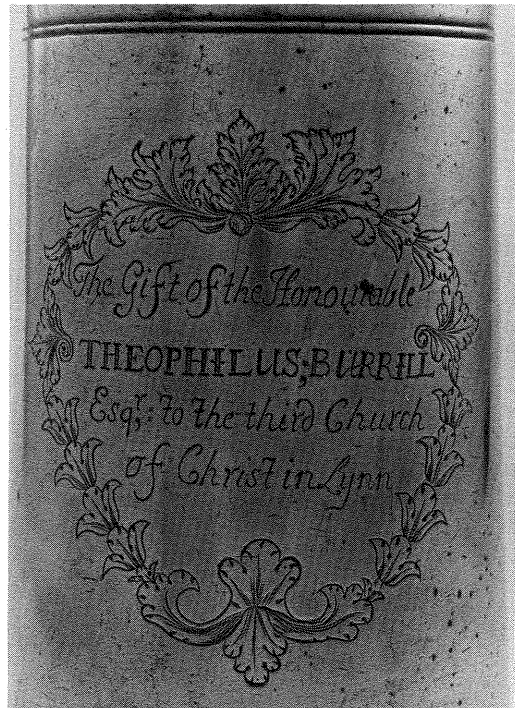 The Gift of the Honourable
THEOPHILUS;BURRILL
Esqr,: to the third Church
of Christ in Lynn